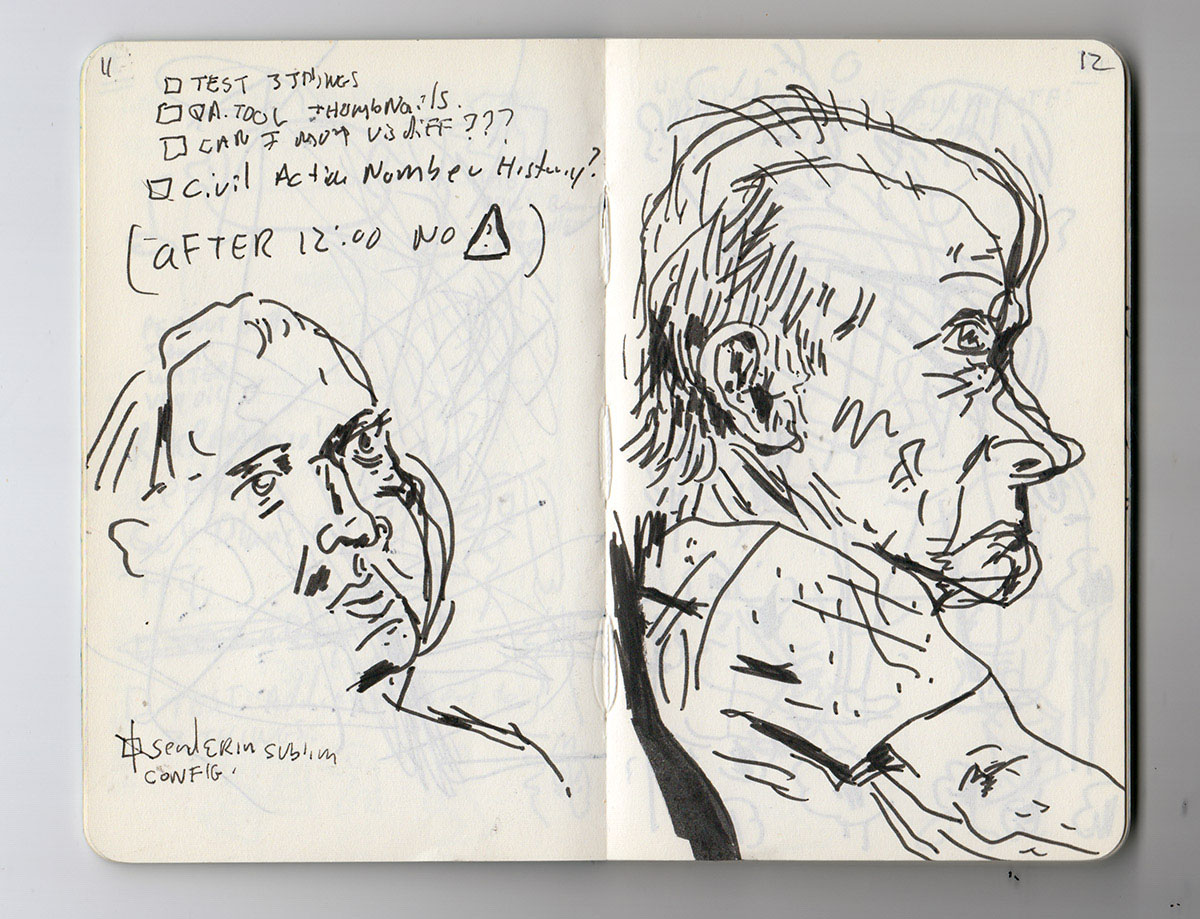 11
12
□ TEST 3 THINGS
□ QA. TOOL THumbNails.
□ CAN I VB diff ???
□ Civil Action Number History?
(AFTER 12:00 NO
□ SendERIN SUBlim
CONFIG.